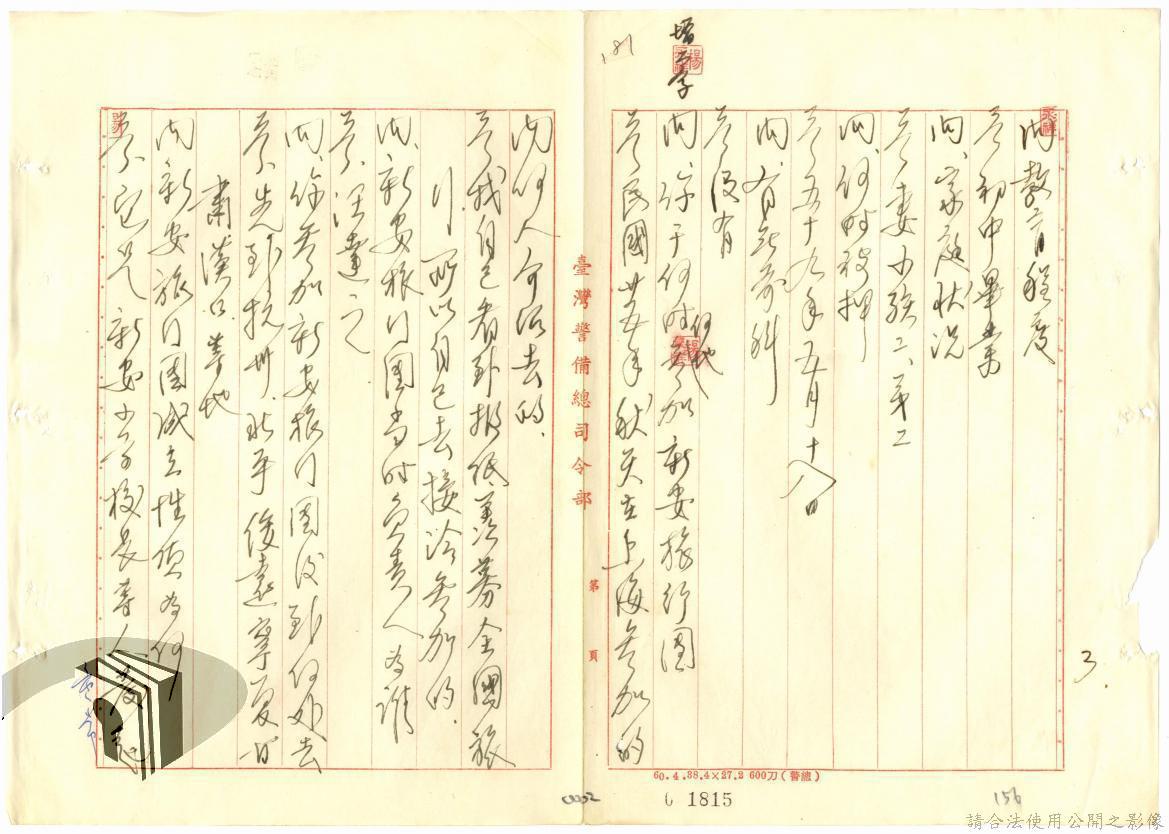 問教育程度
答初中畢業
問、家庭狀況
答、妻小孩二、第二
問、何時被押
答五十九年五月十八日
問、有無前科
答沒有
增二字
問、你于何時何地參加新安旅行團
答民國廿五年秋天在上海參加的
問何人介紹去的、
答我自己看到報紙、羨慕全國旅
行、所以自己去接洽參加的、
問、新安旅行團當時負責人為誰
答、汪達之
問、你參加新安旅行團後到何処去
答、先到杭州、北平、綏遠、寧夏、甘
肅、漢口等地
問新安旅行團成立性質為何
答、它是新安小學校長等人發起
臺灣警備總司令部
第 頁
60.4.38.4×27.2 600刀(警總)
1815
0052
156
3
181
請合法使用公開之影像